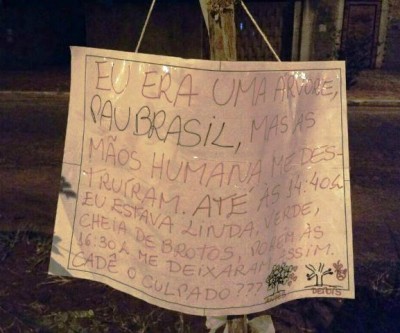 EU ERA UMA ÁRVORE,
PAU BRASIL, MAS AS
MÃOS HUMANA, ME DES-
TRUÍRAM. ATÉ ÀS 14:40h
EU ESTAVA LINDA, VERDE,
CHEIA DE BROTOS, PORÉM ÀS
16:30h ME DEIXARAM ASSIM.
CADÊ O CULPADO???
ANTES
DEPOIS